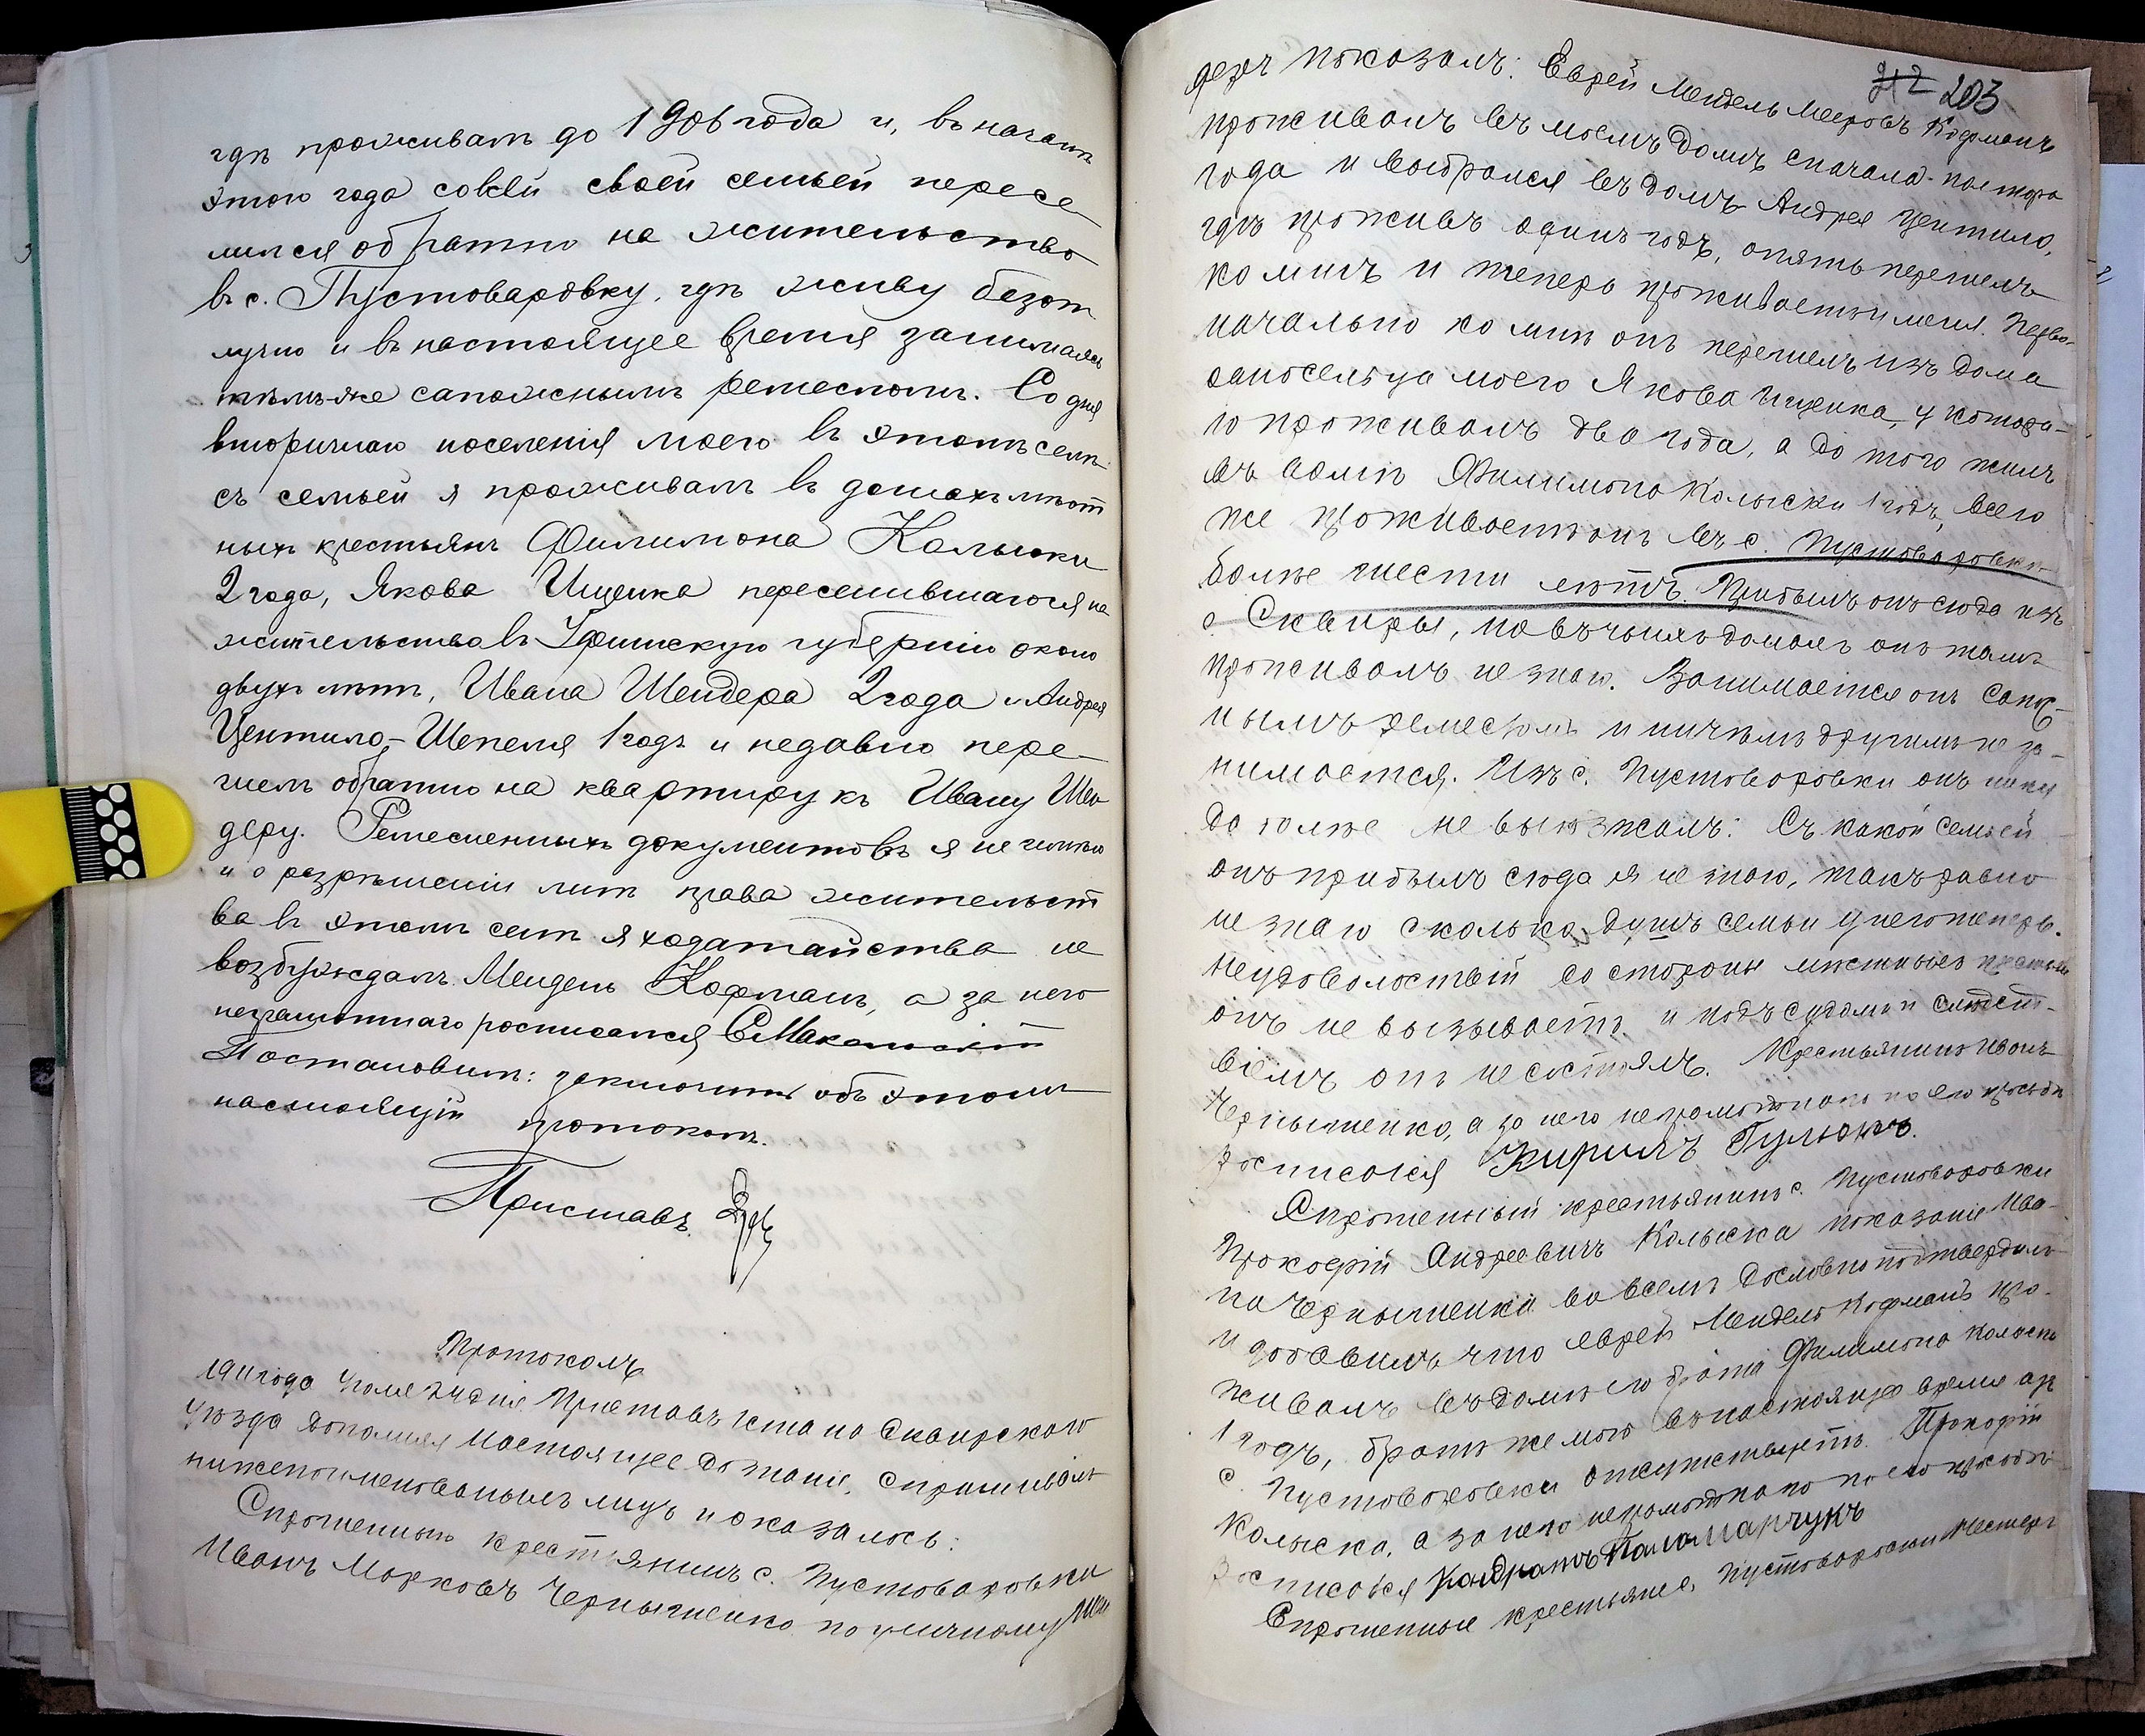 гдѣ проживалъ до 1906 года и, въ началѣ
этого года со всей своей семьей пересе
лился обратно на жительство
въ с. Пустоваровку, гдѣ живу безот
лучно и въ настоящее время занимаясь
тѣмъ-же сапожнымъ ремесломъ. Со дня
вторичнаго поселенія моего въ этомъ селѣ
съ семьей я проживалъ въ домахъ мѣст
ныхъ крестьянъ Филимона Колыски
2 года, Якова Ищенка переселившагося на
жительство въ Уфимскую губернію около
двухъ лѣтъ, Ивана Шендера 2 года и Андрея
Центило-Шепеля 1 годъ и недавно пере-
шелъ обратно на квартиру къ Ивану Шен
деру. Ремесленныхъ документовъ я не имѣю
и о разрѣшеніи мнѣ права жительст
ва въ этомъ селѣ я ходатайства не
возбуждалъ. Мендель Кофманъ, а за него
неграмотнаго росписался
Постановилъ: заключить объ этомъ
настоящій протоколъ.
Приставъ
Протоколъ
1911 года Іюля 24 дня Приставъ 1 стана Сквирскаго
уѣзда дополняя настоящее дознаніе, спрашивалъ
нижепоименованныхъ лицъ и оказалось:
Спрошенный крестьянинъ с. Пустоваровки
Иванъ Марковъ Чернышенко по уличному Шен
212 203
деръ показалъ: Еврей Мендель Мееровъ Кофманъ
проживалъ въ моемъ домѣ сначала полтора
года и выбрался въ домъ Андрея Центило,
гдѣ проживъ одинъ годъ, опять перешелъ
ко мнѣ и теперь проживаетъ у меня. Перво-
начально ко мнѣ онъ перешелъ изъ дома
односельца моего Якова Ищенка, у котора-
го проживалъ два года, а до того жилъ
въ домѣ Филимона Колыски 1 годъ, всего
же проживаетъ онъ въ с. Пустоваровкѣ
болѣе шести лѣтъ. Прибылъ онъ сюда изъ
г. Сквиры, но въ чьихъ домахъ онъ тамъ
проживалъ не знаю. Занимается онъ сапож-
нымъ ремесломъ и ничѣмъ другимъ не за-
нимается. Изъ с. Пустоваровки онъ нику
да болѣе не выѣзжалъ. Съ какой семьей
онъ прибылъ сюда я не знаю, такъ равно
не знаю сколько душъ семьи у него теперь.
Неудовольствій со стороны мѣстныхъ крестьянъ
онъ не вызываетъ и подъ судомъ и слѣдст-
віемъ онъ не состоялъ. Крестьянинъ Иванъ
Чернышенко, а за него неграмотнаго по его просьбѣ
росписался Кирилъ Гулюкъ.
Спрошенный крестьянинъ с. Пустоваровки
Прокофій Андреевичъ Колыска показаніе Ива-
на Чернышенка во всемъ дословно подтвердилъ
и добавилъ что еврей Мендель Кофманъ про-
живалъ въ домѣ его брата Филимона Колыски
1 годъ, братъ же мой въ настоящее время изъ
с. Пустоваровки отсутствуетъ. Прокофій
Колыска, а за него неграмотнаго по его просьбѣ
росписался Кондратъ Паламарчукъ
Спрошенные крестьяне с. Пустоваровки